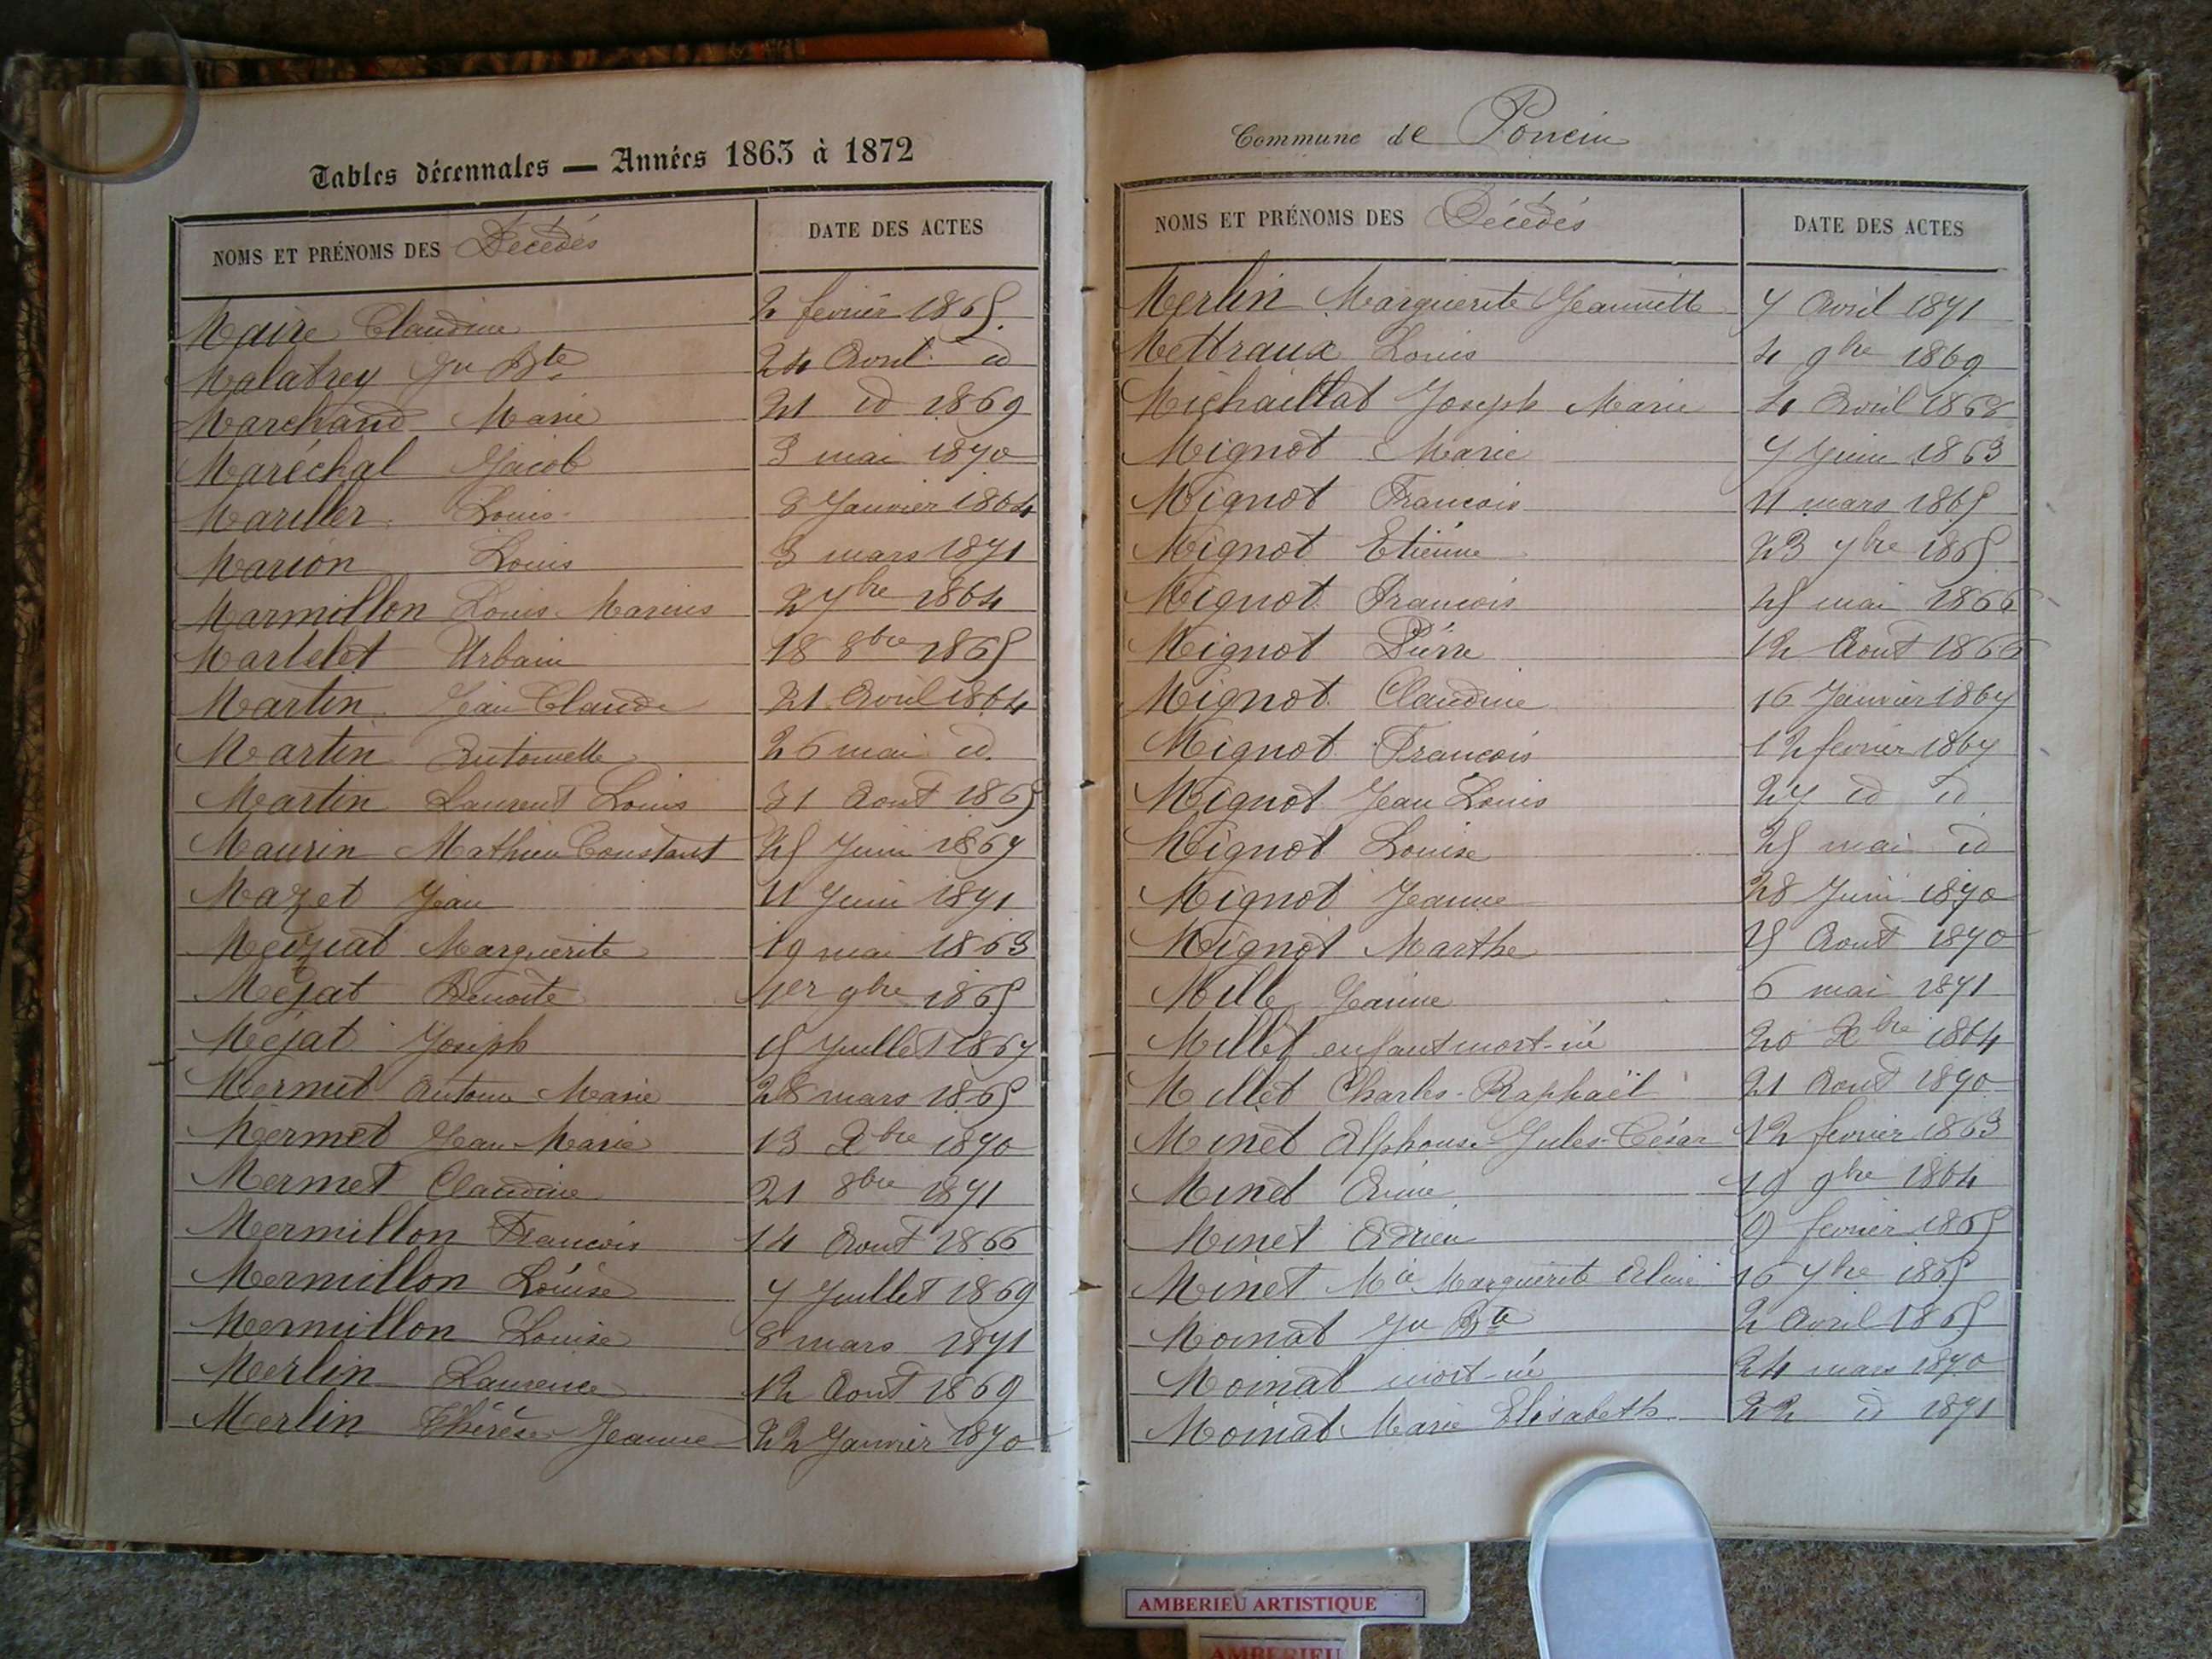 Tables décennales — Années 1863 à 1872
NOMS ET PRÉNOMS DES Décédés DATE DES ACTES
Maire Claudine 2 fevrier 1865.
Malatrey Jn Bte 24 Avril id
Marchand Marie 21 id 1869
Maréchal Jacob 3 mai 1870
Mariller Louis 8 Janvier 1864
Marion Louis 3 mars 1871
Marmillon Louis Marius 2 7bre 1864
Martelet Urbain 18 8bre 1865
Martin Jean Claude 21 Avril 1864
Martin Antoinette 26 mai id
Martin Laurent Louis 31 Aout 1865
Maurin Mathieu Constant 25 Juin 1867
Mazet Jean 11 Juin 1871
Marguerite 19 mai 1863
Méjat Benoite 1er 9bre 1865
Méjat Joseph 15 Juillet 1867
Mermet Antoine Marie 28 mars 1865
Mermet Jean Marie 13 Xbre 1870
Mermet Claudine 21 8bre 1871
Mermillon Francois 14 Aout 1866
Mermillon Louise 7 Juillet 1869
Mermillon Louise 8 mars 1871
Merlin Laurence 12 Aout 1869
Merlin Thérèse Jeanne 22 Janvier 1870
Commune de Poncin
NOMS ET PRÉNOMS DES Décédés DATE DES ACTES
Merlin Marguerite Jeannette 7 Avril 1871
Mettraux Louis 4 9bre 1869
Michaillat Joseph Marie 4 Avril 1868
Mignot Marie 7 Juin 1863
Mignot Francois 11 mars 1865
Mignot Etienne 23 7bre 1865
Mignot Francois 25 mai 1866
Mignot Pierre 12 Aout 1866
Mignot Claudine 16 Janvier 1867
Mignot Francois 12 fevrier 1867
Mignot Jean Louis 27 id id
Mignot Louise 25 mai id
Mignot Jeanne 28 Juin 1870
Mignot Marthe 15 Aout 1870
Mille Jeanne 6 mai 1871
Millet enfant mort-né 20 Xbre 1864
Millet Charles-Raphaël 21 Aout 1870
Minet Alphonse-Jules-César 12 fevrier 1863
Minet Aimé 19 9bre 1864
Minet Adrien fevrier 1865
Minet Mie Marguerite 16 7bre 1865
Moinat Jn Bte 2 Avril 1865
Moinat mort-né 24 mars 1870
Moinat Marie Elisabeth 22 id 1871
AMBERIEU ARTISTIQUE
AMBERIEU